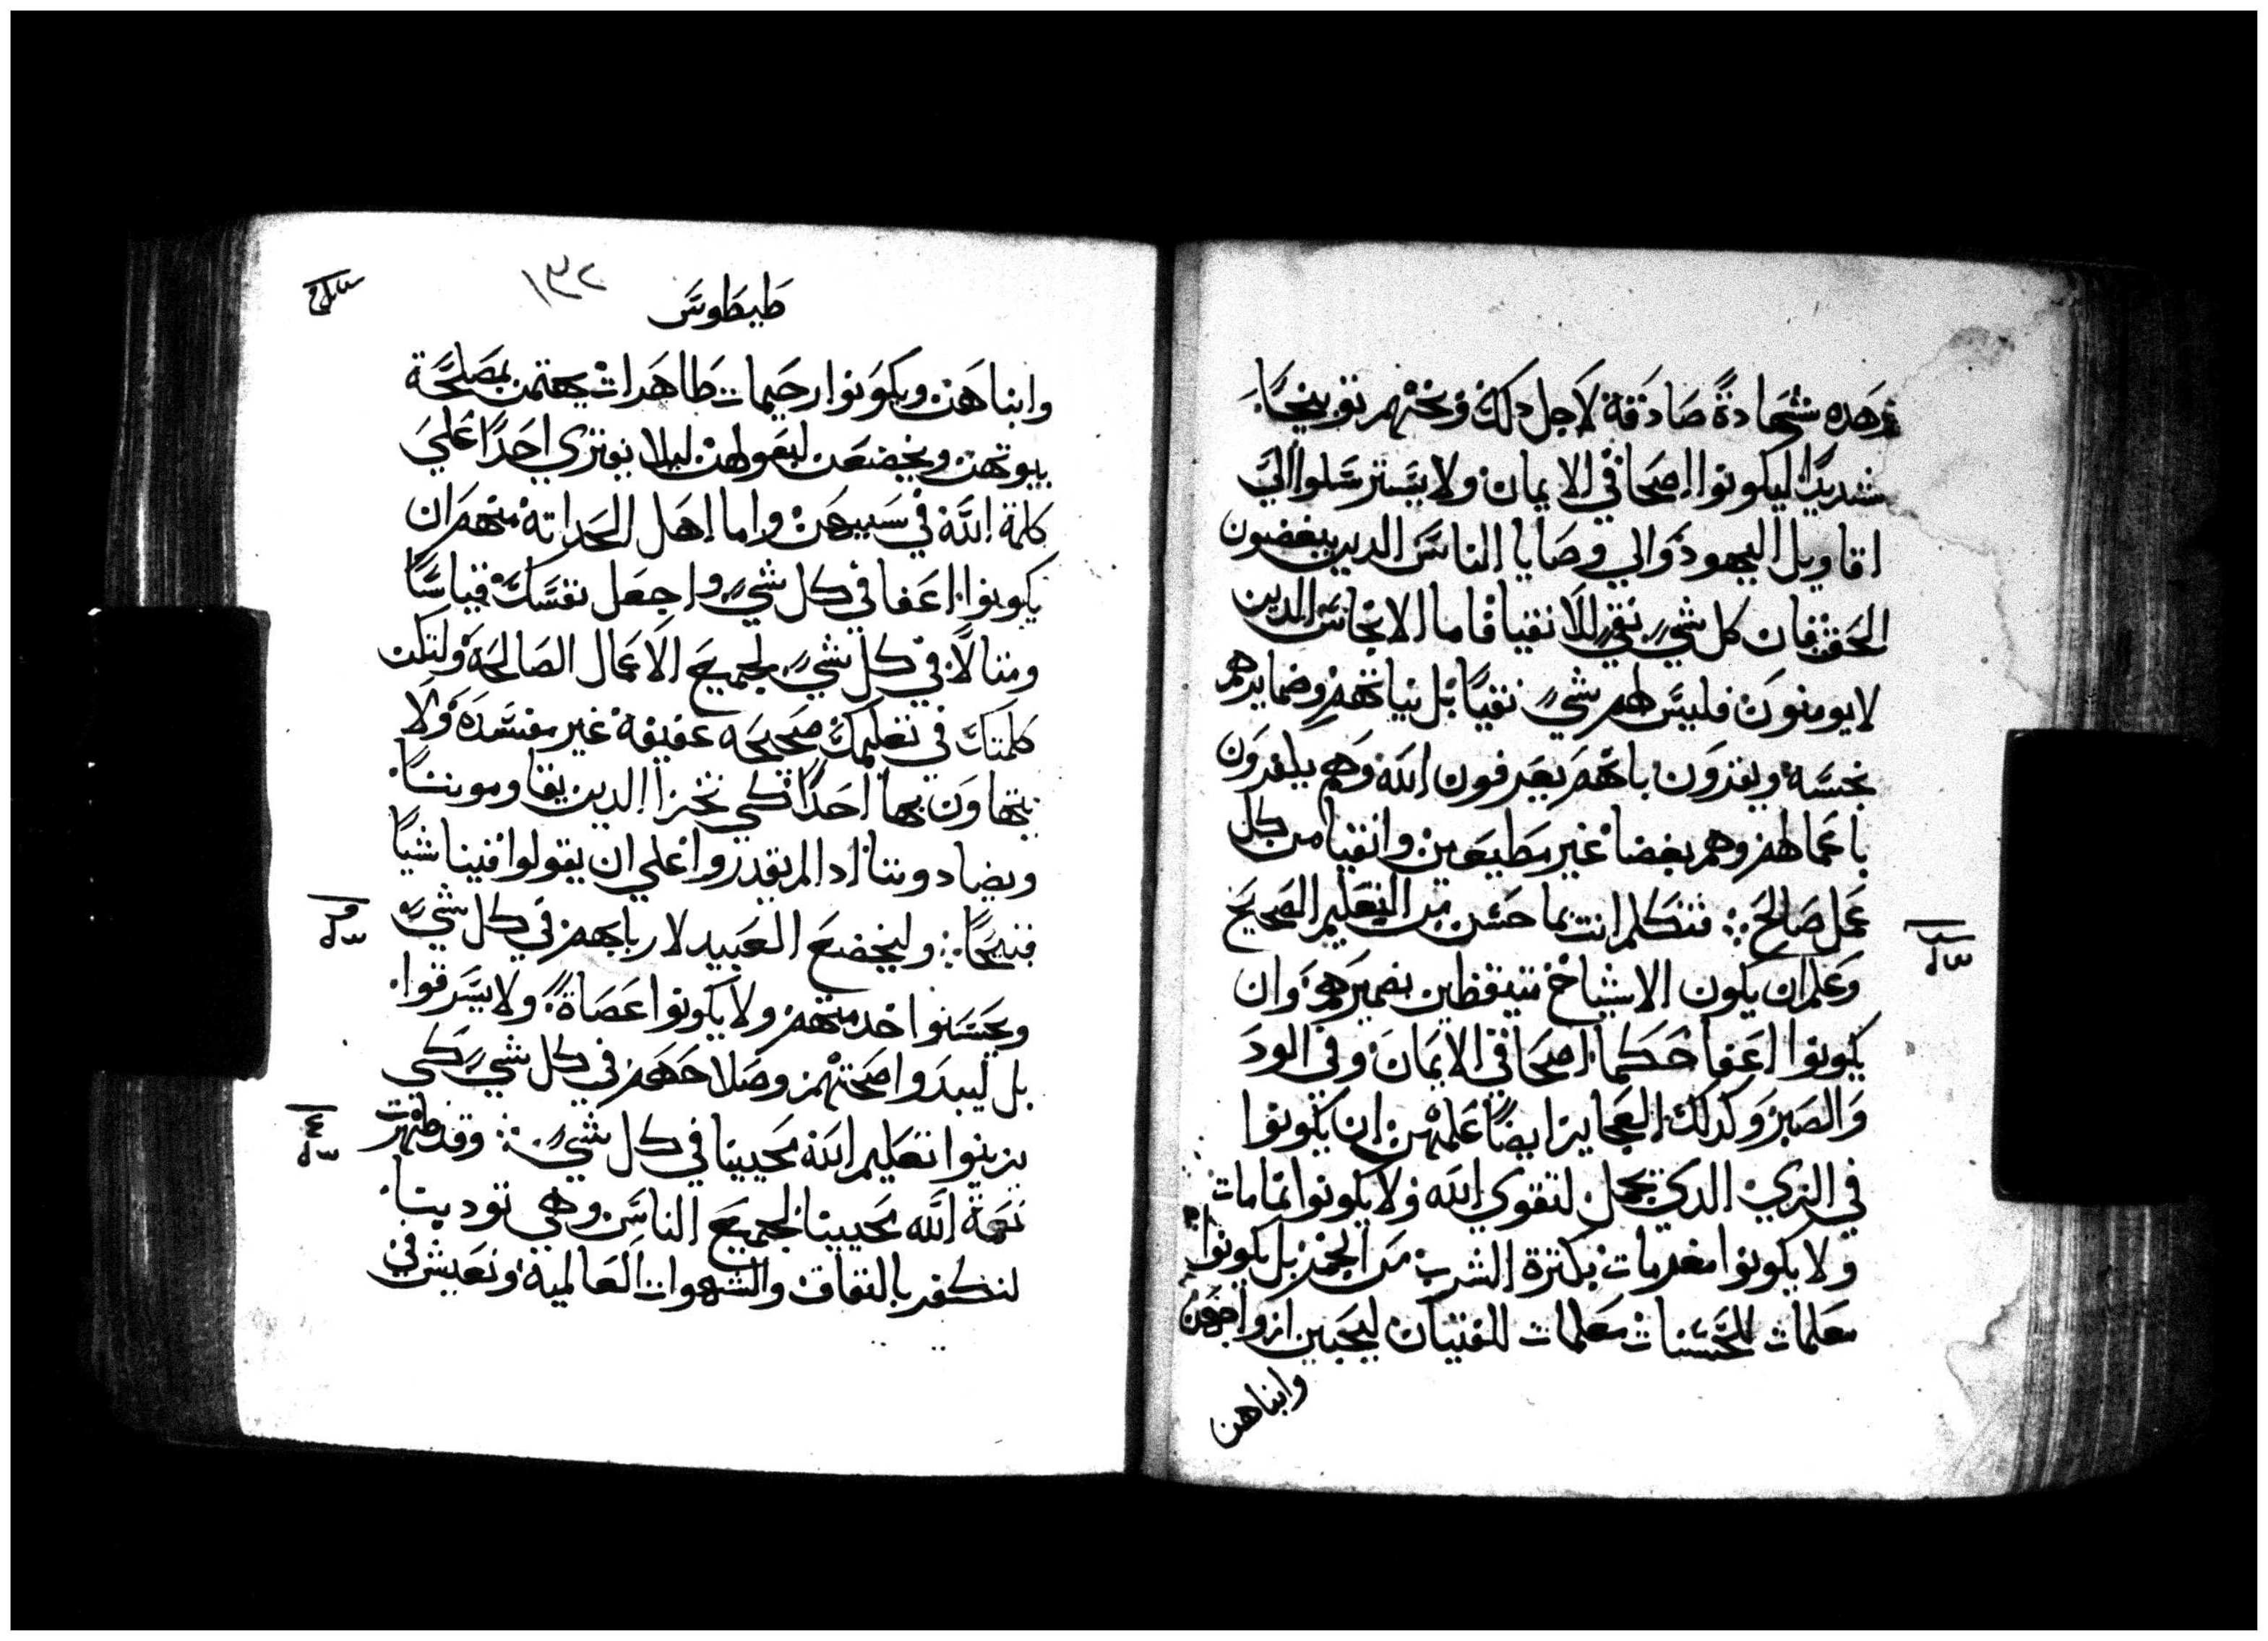 وهده شهادة صادقة لاجل دلك وبختهم توبيخًا
شديدًا ليكونوا اصحا في الايمان ولا يسترسلوا الي
اقاويل اليهود والي وصايا الناس الدين يبغضون
الحق فان كل شي نقي للانقيا فاما الانجاس الدين
لايومنون فليس لهم شي نقيًا بل نياتهم وضمايرهم
نجسه ويقرون بانهم يعرفون الله وهم يكفرون
باعمالهم وهم بغضا غير مطيعين وانقيا من كل
عمل صالح فتكلم انت بما حسن من التعليم الصحيح
وعلم ان يكون الاشياخ متيقظين بضميرهم وان
يكونوا اعفا حكما اصحا في الايمان وفي الود
والصبر وكدلك العجايز ايضًا علمهن ان يكونوا
في الزي الدي يجمل لتقوي الله ولا يكونوا نمامات
ولا يكونوا مغرمات بكترة الشرب من الخمر بل يكونوا
معلمات للحسنات معلمات للفتيات ليحببن ازواجهن
وابناهن
طيطوس
١٣٢
وابناهن ويكونوا رحيمات طاهرات يهتمن بمصلحة
بيوتهن ويخضعن لبعولهن ليلا يفتري احدًا علي
كلمة الله في سببهن واما اهل الحداته منهم ان
يكونوا اعفا في كل شي واجعل نفسك قياسًا
ومتالًا في كل شي لجميع الاعمال الصالحة ولتكن
كلمتك في تعليمك صحيحه عفيفة غير مفسده ولا
يتهاون بها احدًا كي نخزا الدين يقاومونـنا
ويضادوننا ادا لم يقدروا علي ان يقولوا فينا شيًا
قبيحًا وليخضع العبيد لاربابهم في كل شي
ويحسنوا خدمتهم ولا يكونوا عصاة ولا يسرقوا
بل ليبدوا صحتهم وصلاحهم في كل شي كي
يزينوا تعليم الله محيينا في كل شي وقد ظهرت
نعمة الله محيينا لجميع الناس وهي تودبنا
لنكفر بالنفاق والشهوات العالمية ونعيش في